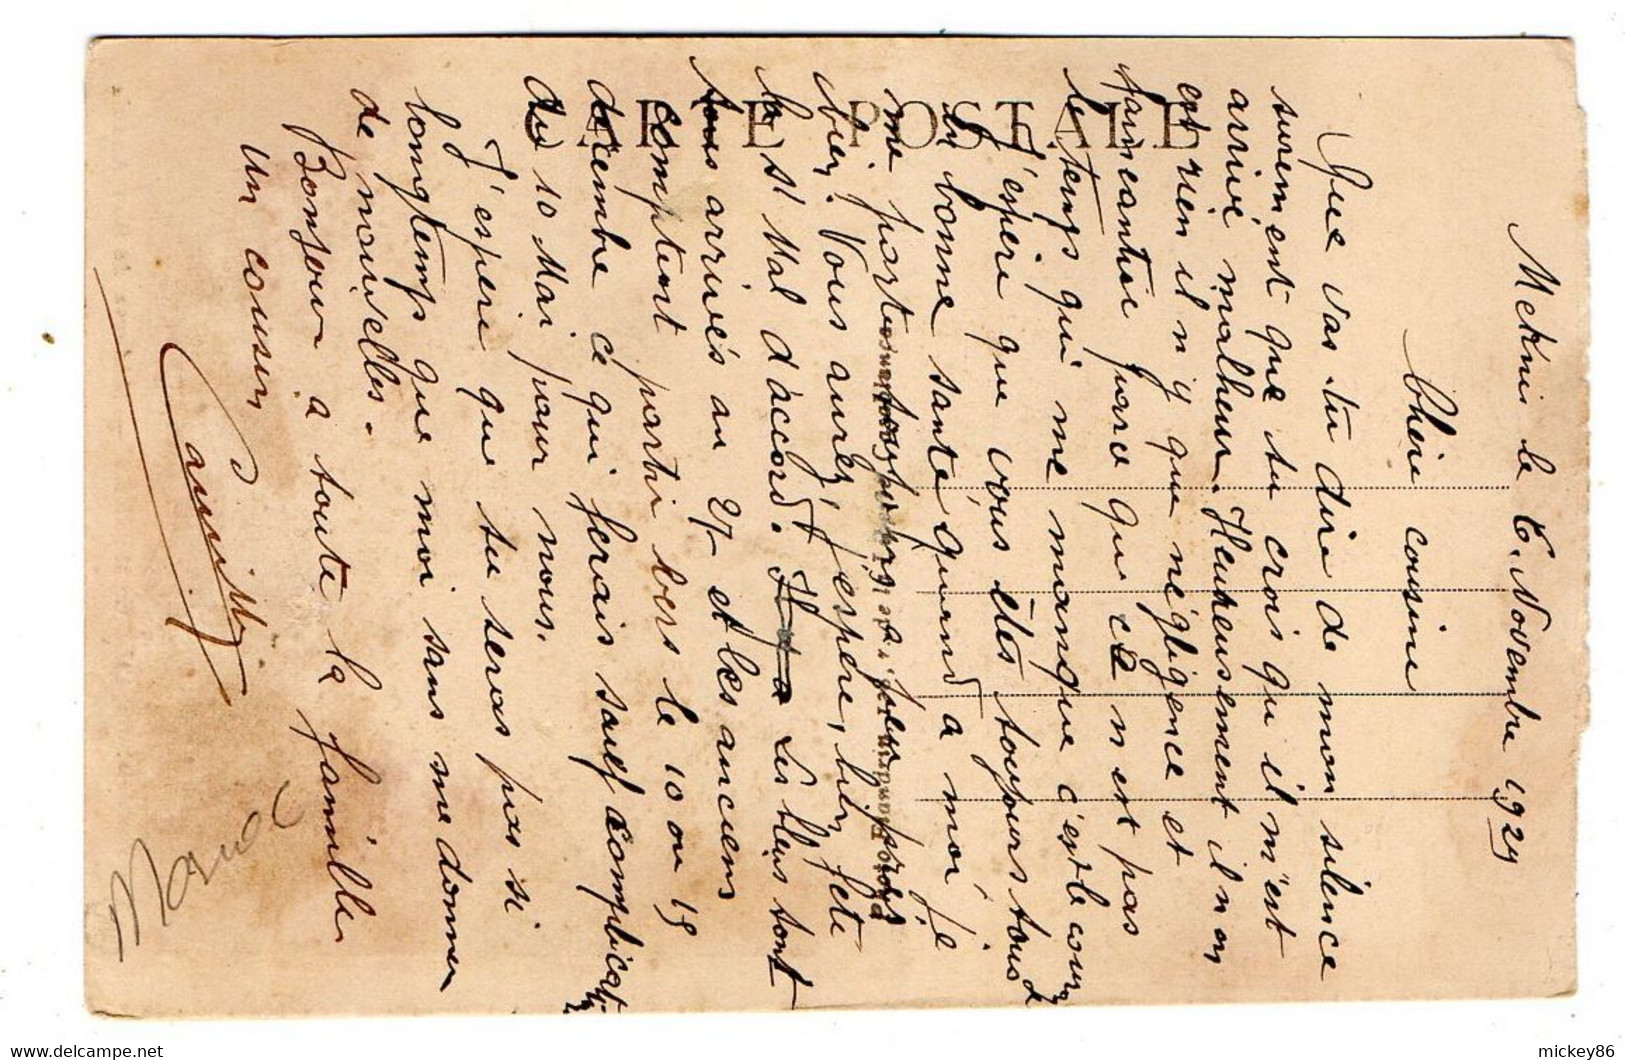 CARTE POSTALE
Meknes le 6. Novembre 1929
Chère cousine
Que vas-tu dire de mon silence
surement que tu crois qu'il m'est
arrivé malheur. Heureusement il n en
est rien il n y que négligence et
faineantise parce que ce n est pas
le temps qui me manque c'est le courage
J'espère que vous êtes toujours tous de
bonne santé quand a moi je
me porte toujours a peu pres
bien. Vous aurez j'espère, bien fete
la St Mal d'accord. Les bleus sont
tous arrivés au 27 et les anciens
comptent partir vers le 10 ou 15
décembre ce qui ferais sauf complicati
des 10 Mai pour nous.
J'espère que tu seras pas si
longtemps que moi sans me donner
de nouvelles.
Bonjour a toute la famille
Un cousin
Camille
Maroc
mickey86